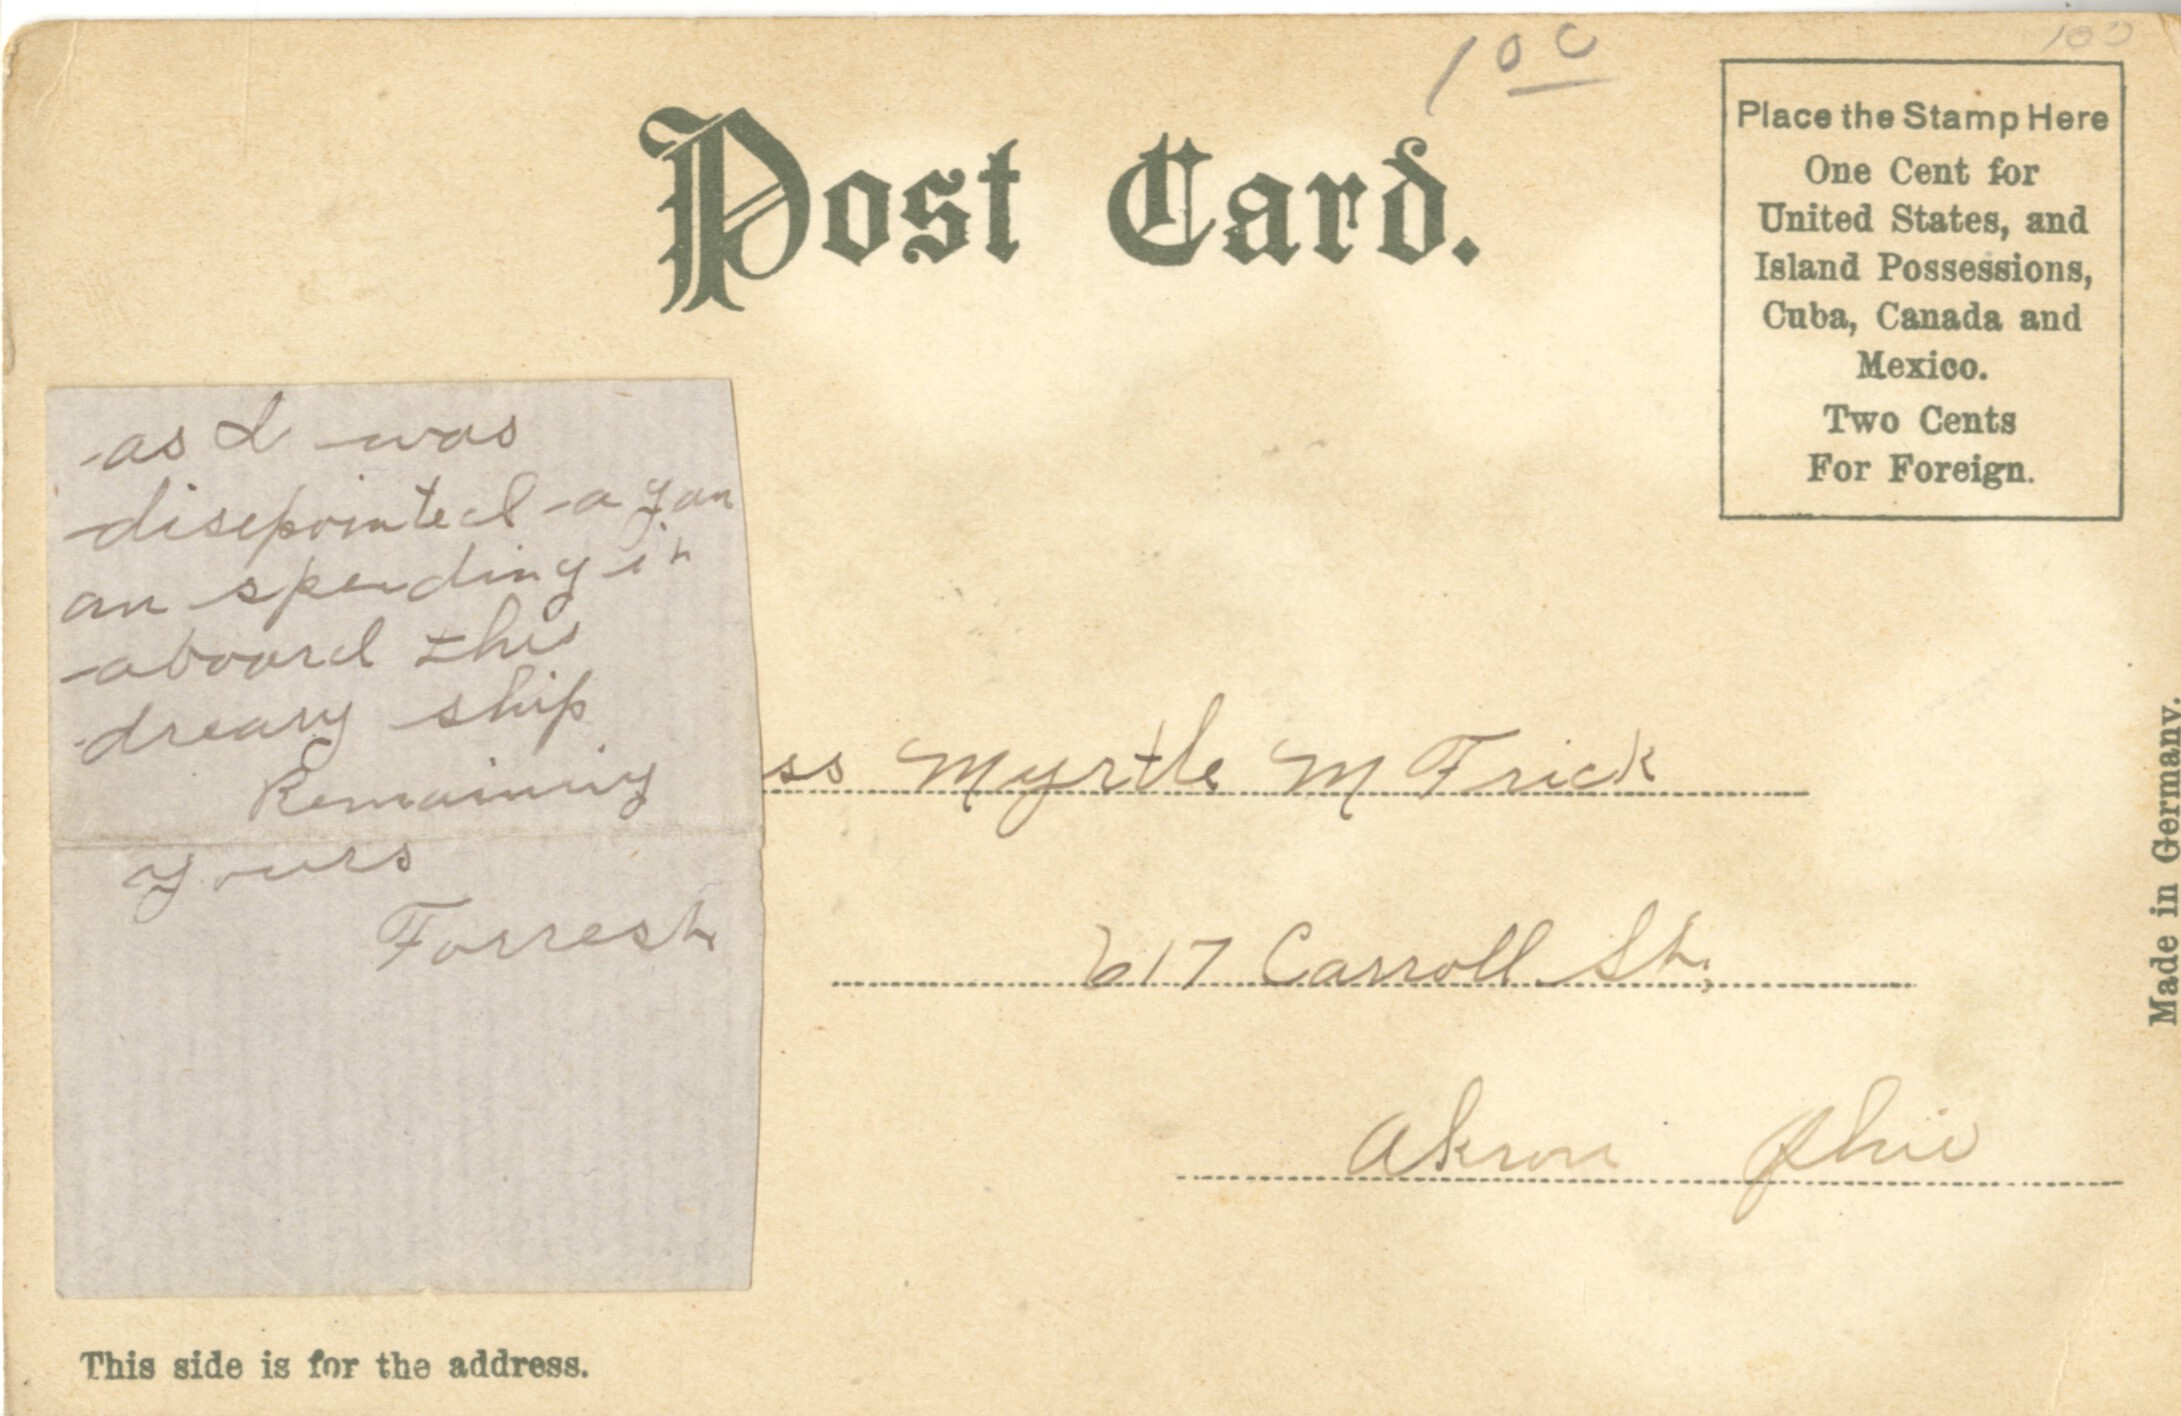 100
100
Post Card.
Place the Stamp Here
One Cent for
United States, and
Island Possessions,
Cuba, Canada and
Mexico.
Two Cents
For Foreign.
as I was
disepointed agan
an spending in
aboard this
dreary ship
Remaining
yours
Forrest
ss Myrtle M Frick
617 Carroll St.
Akron Ohio
Made in Germany.
This side is for the address.